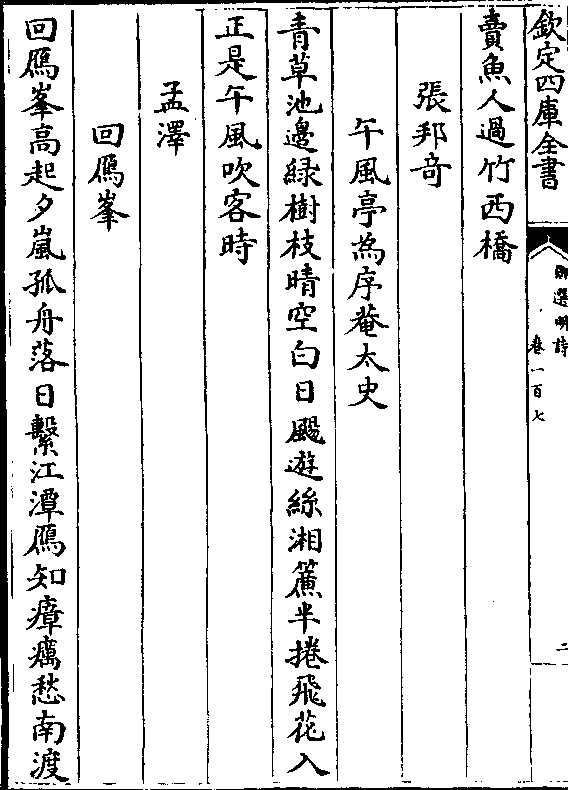 欽定四庫全書
御選明詩 卷一百七
二
賣魚人過竹西橋
張邦奇
午風亭為序菴太史
青草池邊綠樹枝晴空白日颺遊絲湘簾半捲飛花入
正是午風吹客時
孟澤
回鴈峯
回鴈峯高起夕嵐孤舟落日繫江潭鴈知瘴癘愁南渡